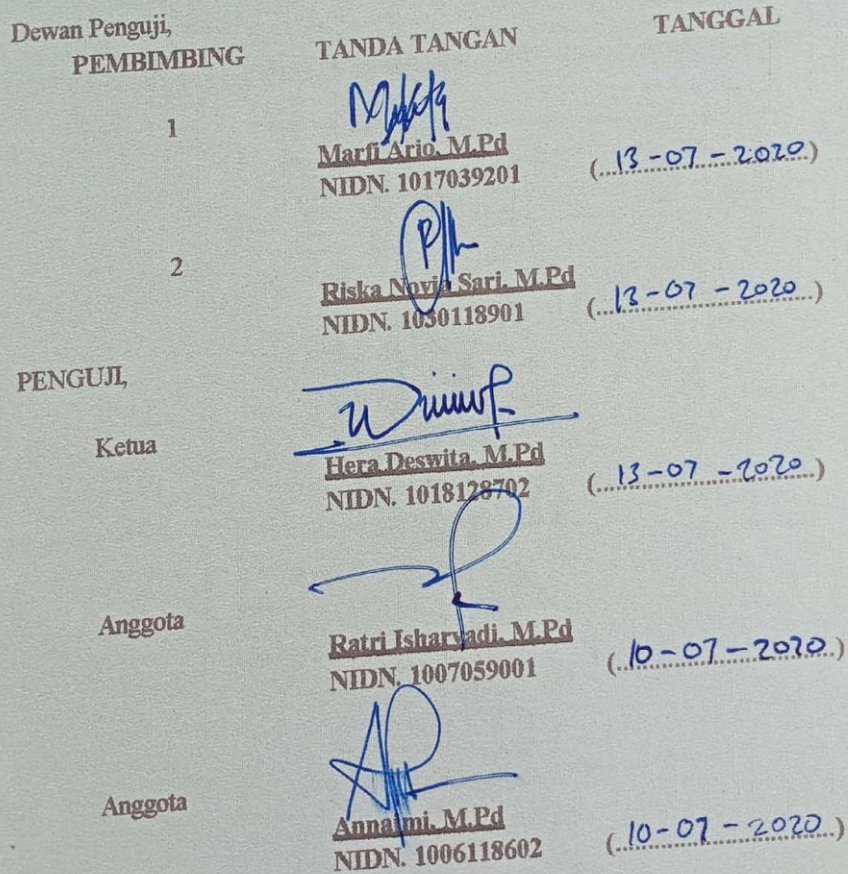 Dewan Penguji,
PEMBIMBING TANDA TANGAN TANGGAL
1
Marfi Ario, M.Pd
NIDN. 1017039201 (...13-07-2020...)
2
Riska Novia Sari, M.Pd
NIDN. 1030118901 (...13-07-2020...)
PENGUJI,
Ketua
Hera Deswita, M.Pd
NIDN. 1018128702 (...13-07-2020...)
Anggota
Ratri Isharyadi, M.Pd
NIDN. 1007059001 (...10-07-2020...)
Anggota
Annajmi, M.Pd
NIDN. 1006118602 (...10-07-2020...)